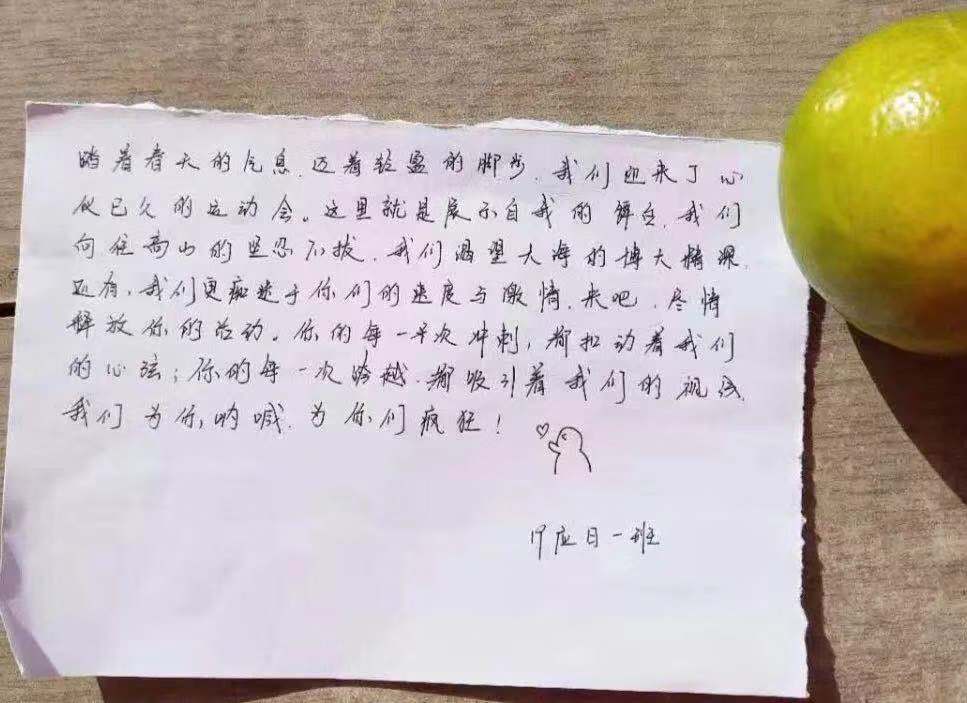 踏着春天的气息,迈着轻盈的脚步,我们迎来了心
仪已久的运动会。这里就是展示自我的舞台,我们
向往高山的坚忍不拔,我们渴望大海的博大精深,
还有,我们更痴迷于你们的速度与激情,来吧,尽情
释放你的活动。你的每一次冲刺,都扣动着我们
的心弦;你的每一次跨越,都吸引着我们的视线,
我们为你,呐喊,为你们疯狂!
17应日一班